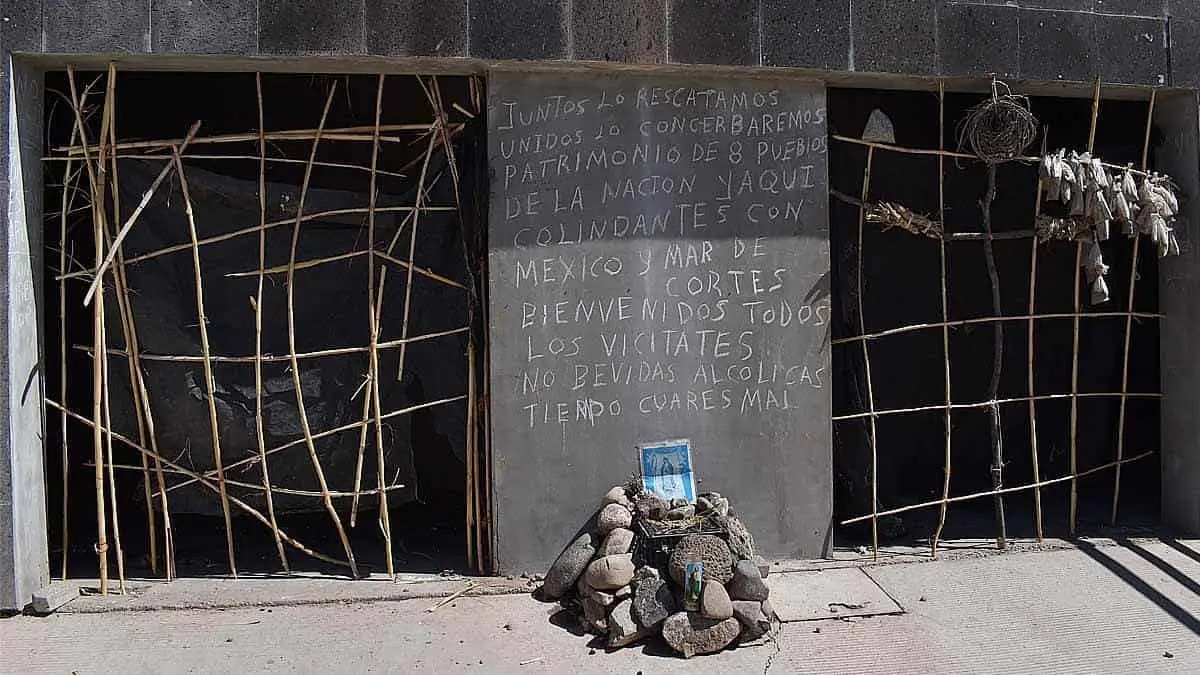 JUNTOS LO RESCATAMOS
UNIDOS LO CONCERBAREMOS
PATRIMONIO DE 8 PUEBLOS
DE LA NACION YAQUI
COLINDANTES CON
MEXICO Y MAR DE
CORTES
BIENVENIDOS TODOS
LOS VICITATES
NO BEVIDAS ALCOLICAS
TIENPO CUARESMAL